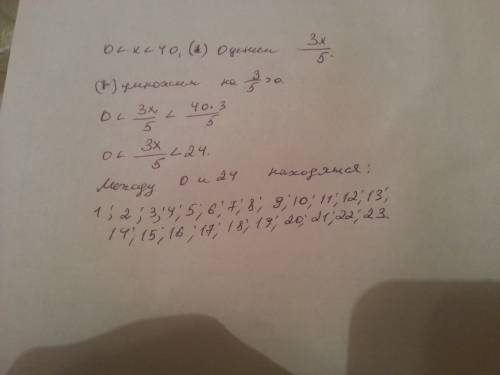 0 < x < 40, (1) Оценим 3x/5.
(1) умножим на 3/5 > 0.
0 < 3x/5 < 40·3/5
0 < 3x/5 < 24.
Между 0 и 24 находятся:
1; 2; 3; 4; 5; 6; 7; 8; 9; 10; 11; 12; 13;
14; 15; 16; 17; 18; 19; 20; 21; 22; 23